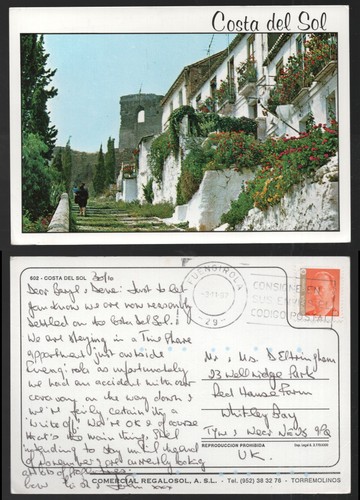 Costa del Sol
602 - COSTA DEL SOL
30/10
Dear Beryl & Dave: Just to let
you know we are now reasonably
settled on the Costa Del Sol.
We are staying in a Two Phase
appartment just outside
Fuengirola as unfortunately
we had an accident with our
caravan on the way down &
it's fairly certainly a
'write off'. We're OK & of course
that's the main thing. Still
intending to stay until
currently looking
at lots of
love
John xxx
FUENGIROLA
-29-
CONSIGNE EN
SUS ENVIOS
CODIGO POSTAL
Mr & Mrs D Eltringham
33 Wellridge Park
Red House Farm
Whitley Bay
Tyne & Wear
UK.
REPRODUCCION PROHIBIDA
COMERCIAL REGALOSOL, A. S.L. - Tel. (952) 38 32 76 - TORREMOLINOS